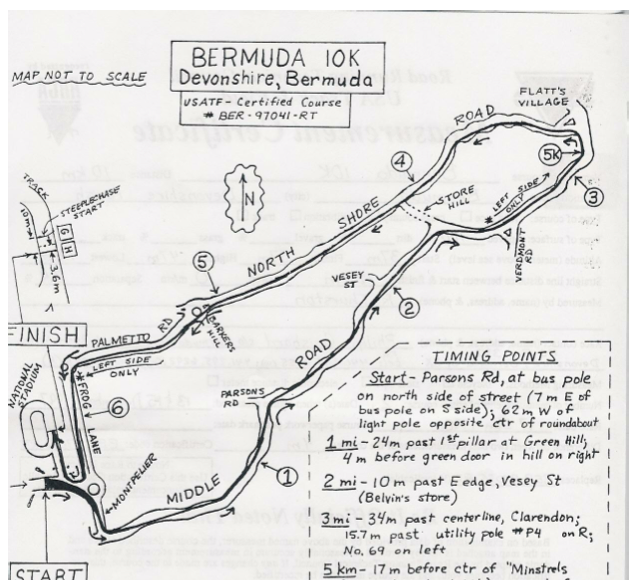 BERMUDA 10K
Devonshire, Bermuda
USATF-Certified Course
* BER-97041-RT
MAP NOT TO SCALE
FLATT'S
VILLAGE
ROAD
5K
4
3
STORE
HILL
* LEFT SIDE
ONLY
VERMONT
RD
N
SHORE
NORTH
5
TRACK
STEEPLECHASE
START
10m
G H
3.6m
VESEY
ST
2
FINISH
PALMETTO RD
BARKERS
HILL
* LEFT SIDE
ONLY
ROAD
NATIONAL
STADIUM
FROG
LANE
6
PARSONS
RD
1
MIDDLE
MONTPELIER
START
TIMING POINTS
Start - Parsons Rd, at bus pole
on north side of street (7m E of
bus pole on S side); 62m W of
light pole opposite ctr of roundabout
1 mi - 24m past 1st pillar at Green Hill;
4m before green door in hill on right
2 mi - 10m past E edge, Vesey St
(Belvin's store)
3 mi - 34m past centerline, Clarendon;
15.7m past utility pole #P4 on R;
No. 69 on left
5 km - 17m before ctr of "Minstrels